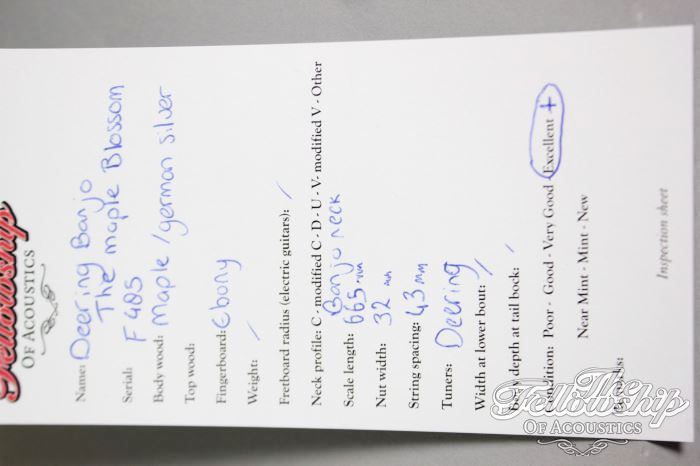 Fellowship
OF ACOUSTICS
Name: Deering Banjo
The maple Blossom
Serial: F 405
Body wood: Maple / german silver
Top wood:
Fingerboard: Ebony
Weight: /
Freeboard radius (electric guitars): /
Neck profile: C - modified C - D - U - V - modified V - Other
Banjo neck
Scale length: 665 mm
Nut width: 32 mm
String spacing: 43 mm
Tuners: Deering
Width at lower bout: /
Body depth at tail bock: /
Condition: Poor - Good - Very Good - Excellent +
Near Mint - Mint - New
Remarks:
Inspection sheet
FellowShip
OF ACOUSTICS